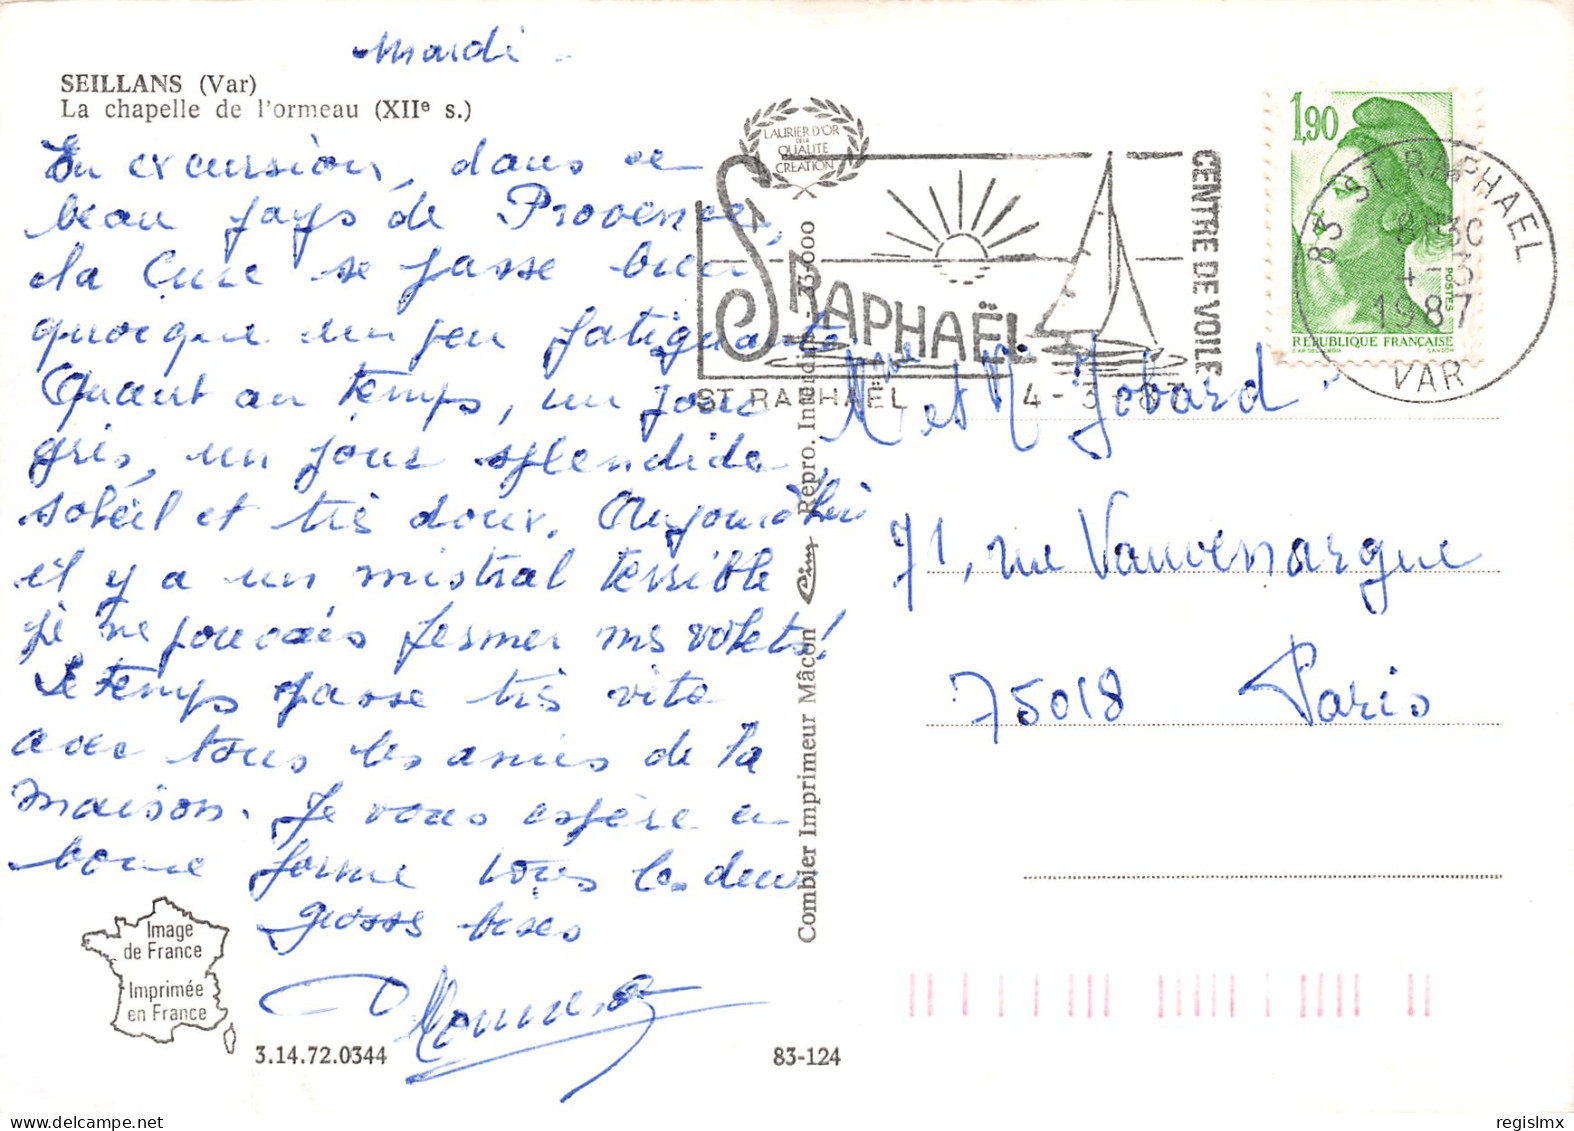 Mardi
SEILLANS (Var)
La chapelle de l'ormeau (XIIe s.)
En excursion, dans ce
beau pays de Provence,
la Cure se passe bien
quoique un peu fatiguante
Quant au temps, un jour
gris, un jour splendide,
soleil et très doux. Aujourd'hui
il y a un mistral terrible
je ne pouvais fermer mes volets!
Le temps passe très vite
avec tous les amies de la
maison. Je vous espère en
bonne forme tous les deux
grosses bises
Image
de France
Imprimée
en France
3.14.72.0344
83-124
Combier Imprimeur Mâcon Cim Repro. Interdite - 33-000
LAURIER D'OR
DE LA
QUALITE
CREATION
ST RAPHAËL
CENTRE DE VOILE
ST RAPHAËL 4-3-87
1,90
POSTES
REPUBLIQUE FRANÇAISE
D'AP. DELACROIX GANDON
83 ST RAPHAEL
8H30
4-3
1987
VAR
Mme et Mr Jobard
71, rue Vauvenargue
75018 Paris
regislmx